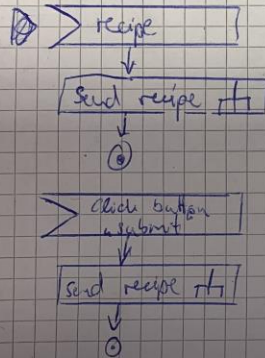 recipe
Send recipe
Click button
"submit
Send recipe